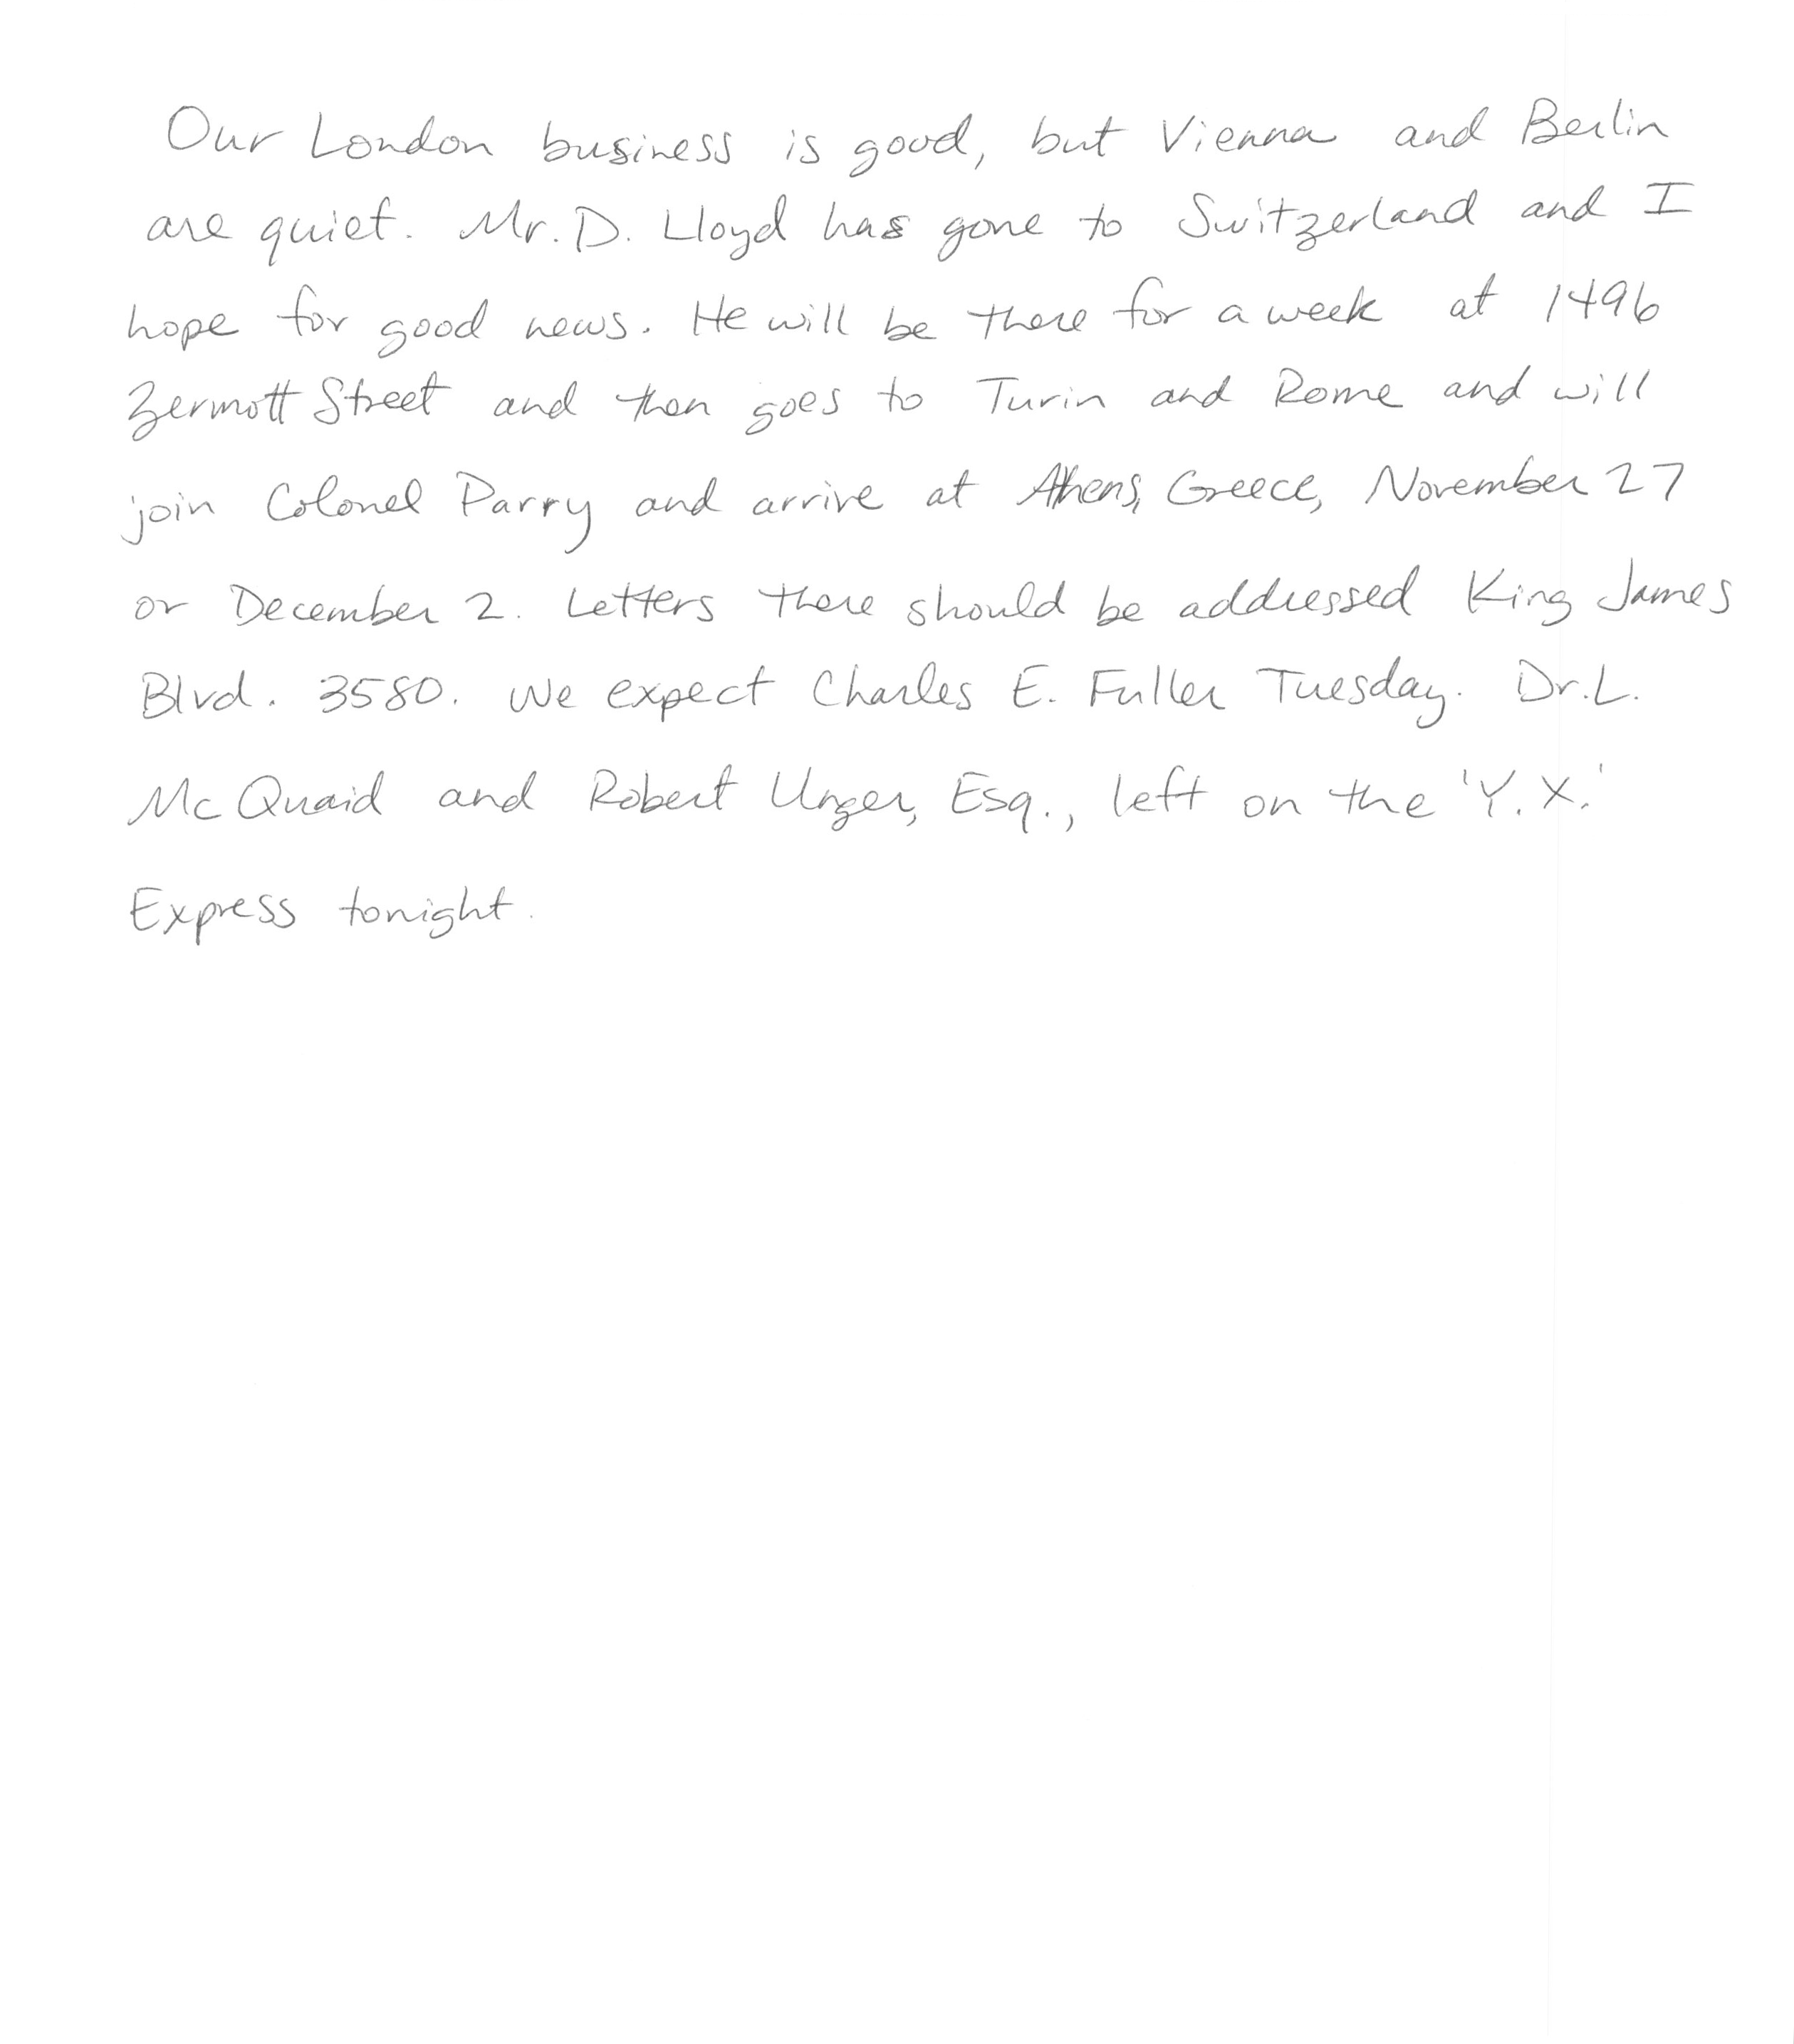 Our London business is good, but Vienna and Berlin
are quiet. Mr. D. Lloyd has gone to Switzerland and I
hope for good news. He will be there for a week at 1496
Zermott Street and then goes to Turin and Rome and will
join Colonel Parry and arrive at Athens, Greece, November 27
or December 2. Letters there should be addressed King James
Blvd. 3580. We expect Charles E. Fuller Tuesday. Dr. L.
McQuaid and Robert Unger, Esq., left on the 'Y.X.'
Express tonight.